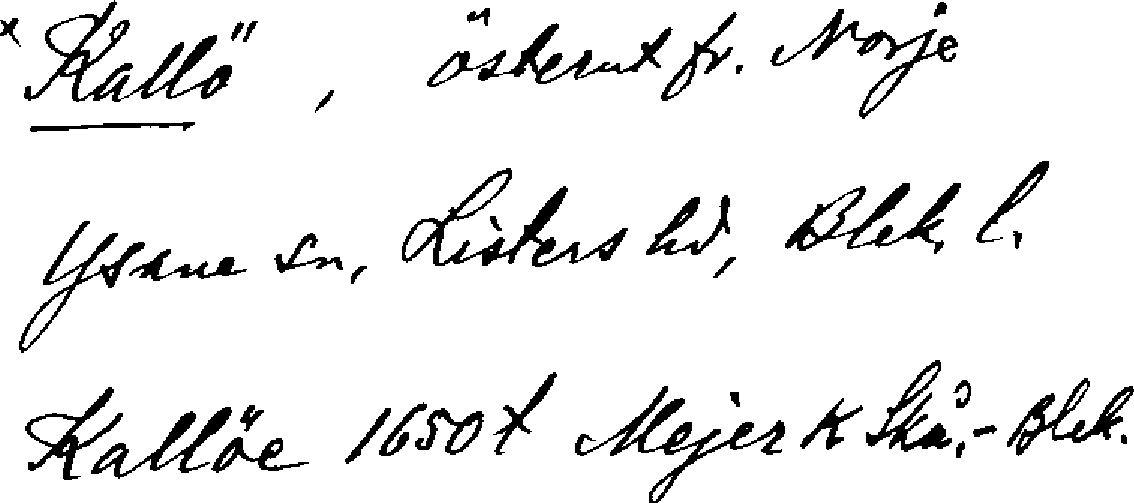 * Kallö, österut fr. Norje
Ysane sn, Listers hd, Blek. l.
Kallöe 1650 t Mejer K Skå.-Blek.